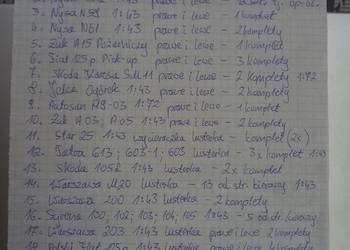 3. Nysa N59 1:43 prawe i lewe - 1 komplet
4. Nysa N61 1:43 prawe i lewe - 2 komplety
5. Żuk A15 Pożarniczy prawe i lewe - 1 komplet
6. Fiat 125p Pick-up prawe i lewe - 3 komplety
7. Skoda prawe i lewe - 2 komplety 1:72
8. Jelcz Ogórek 1:43 prawe i lewe - 2 komplety
9. Autosan H9-03 1:72 prawe i lewe - 1 komplet
10. Żuk A03; A05 1:43 prawe i lewe - 2 komplety
11. Star 25 1:43 wycieraczka lusterka - komplet (2x)
12. Tatra 613; 603-1; 603 lusterka - 3x komplet 1:43
13. Skoda 105L 1:43 lusterka - 2x komplet
14. Warszawa M20 lusterka - 13 od str. kierowcy 1:43
15. Warszawa 200 1:43 lusterka - 2 komplety
16. Syrena 100; 102; 103; 104; 105 1:43 - 5 od str. kierowcy
17. Warszawa 203 1:43 lusterka prawe lewe 2 komplety
Polski Fiat 125p 1:43 prawe lewe